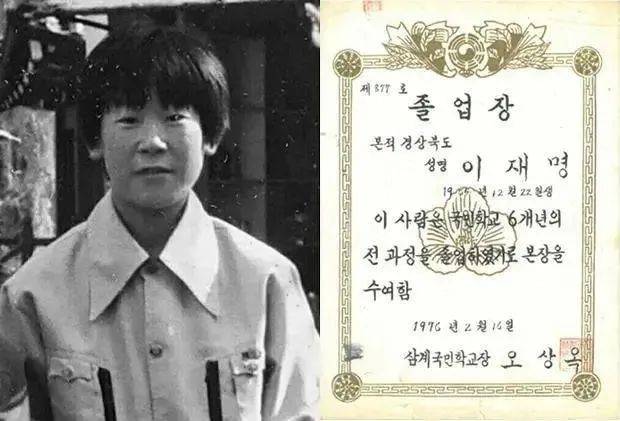 제 377 호
졸업장
본적 경상북도
성명 이재명
12월 22일생
이 사람은 국민학교 6개년의
전 과정을 졸업하였기로 본장을
수여함
1976년 2월 16일
삼계국민학교장 오상옥